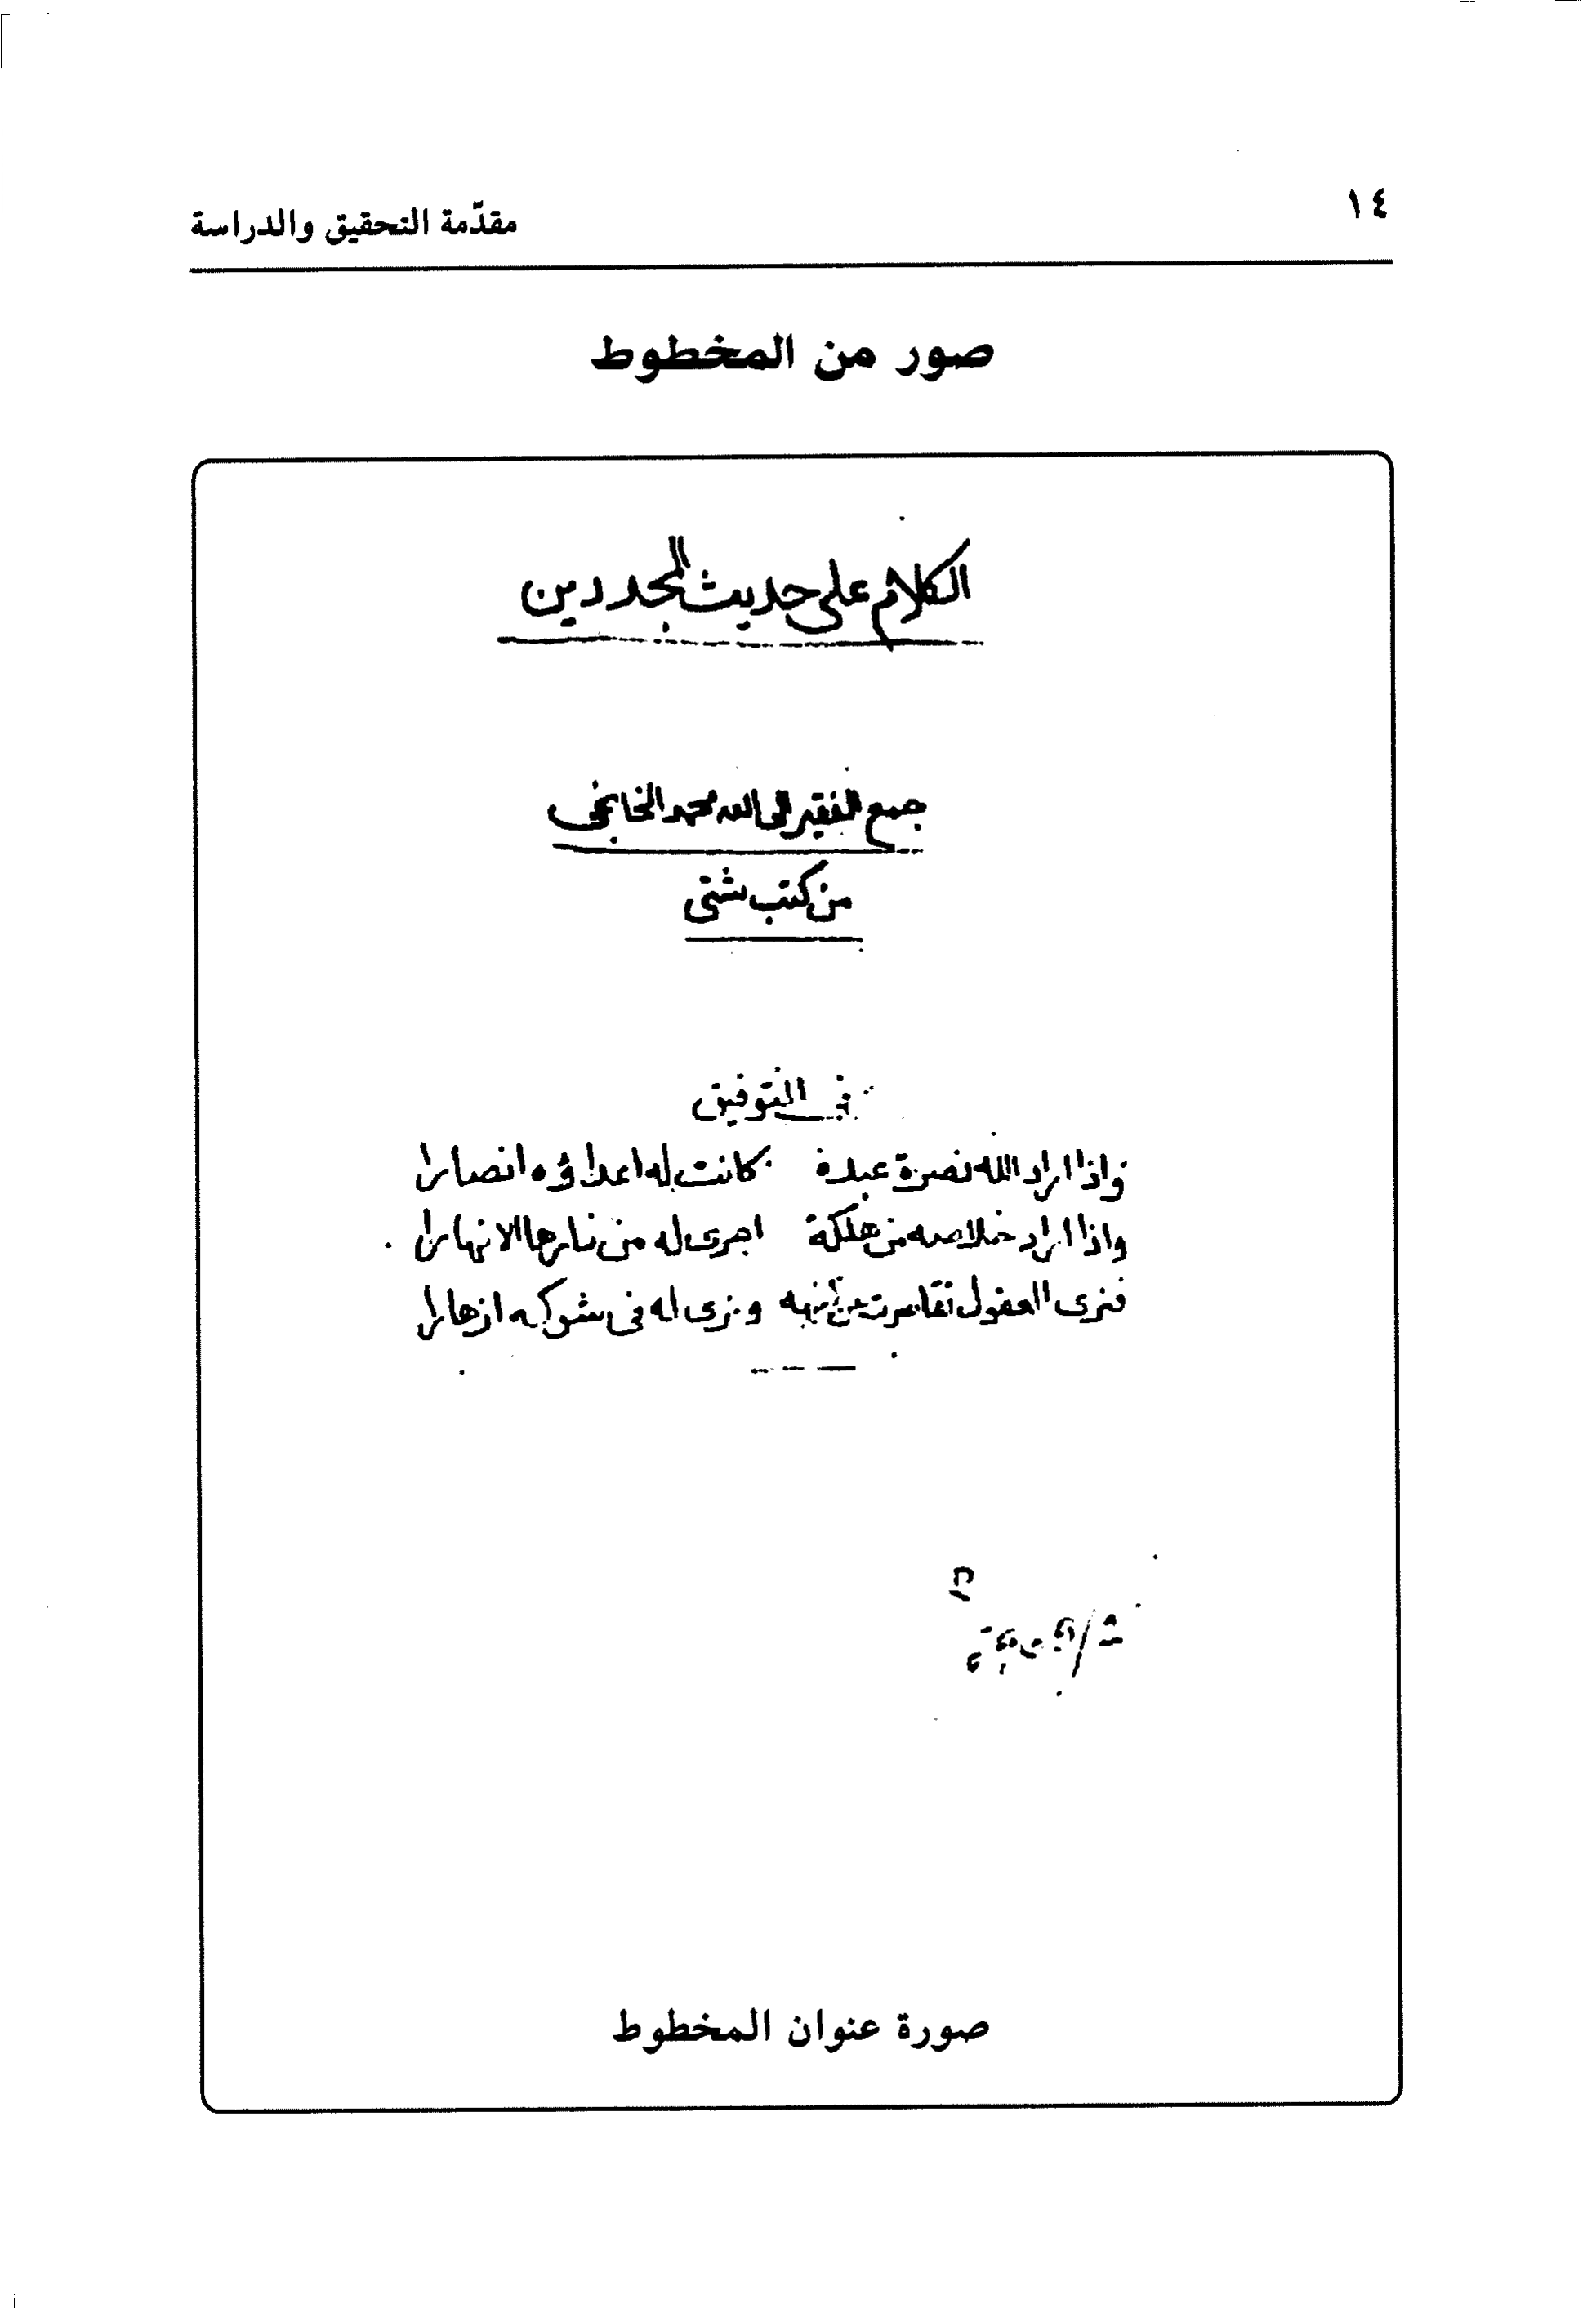 ١٤
مقدّمة التحقيق والدراسة
صور من المخطوط
الكلام على حديث المجددين
جمع الفقير الى الله محمد الخانجى
من كتب شتى
فى التوفيق
واذا اراد الله نصرة عبده كانت له اعداؤه انصارا
واذا اراد خلاصه من هلكة اجرى له من نارها الانهارا
فترى العقول تقاصرت عن كنهه وترى له فى شوكه ازهارا
صورة عنوان المخطوط